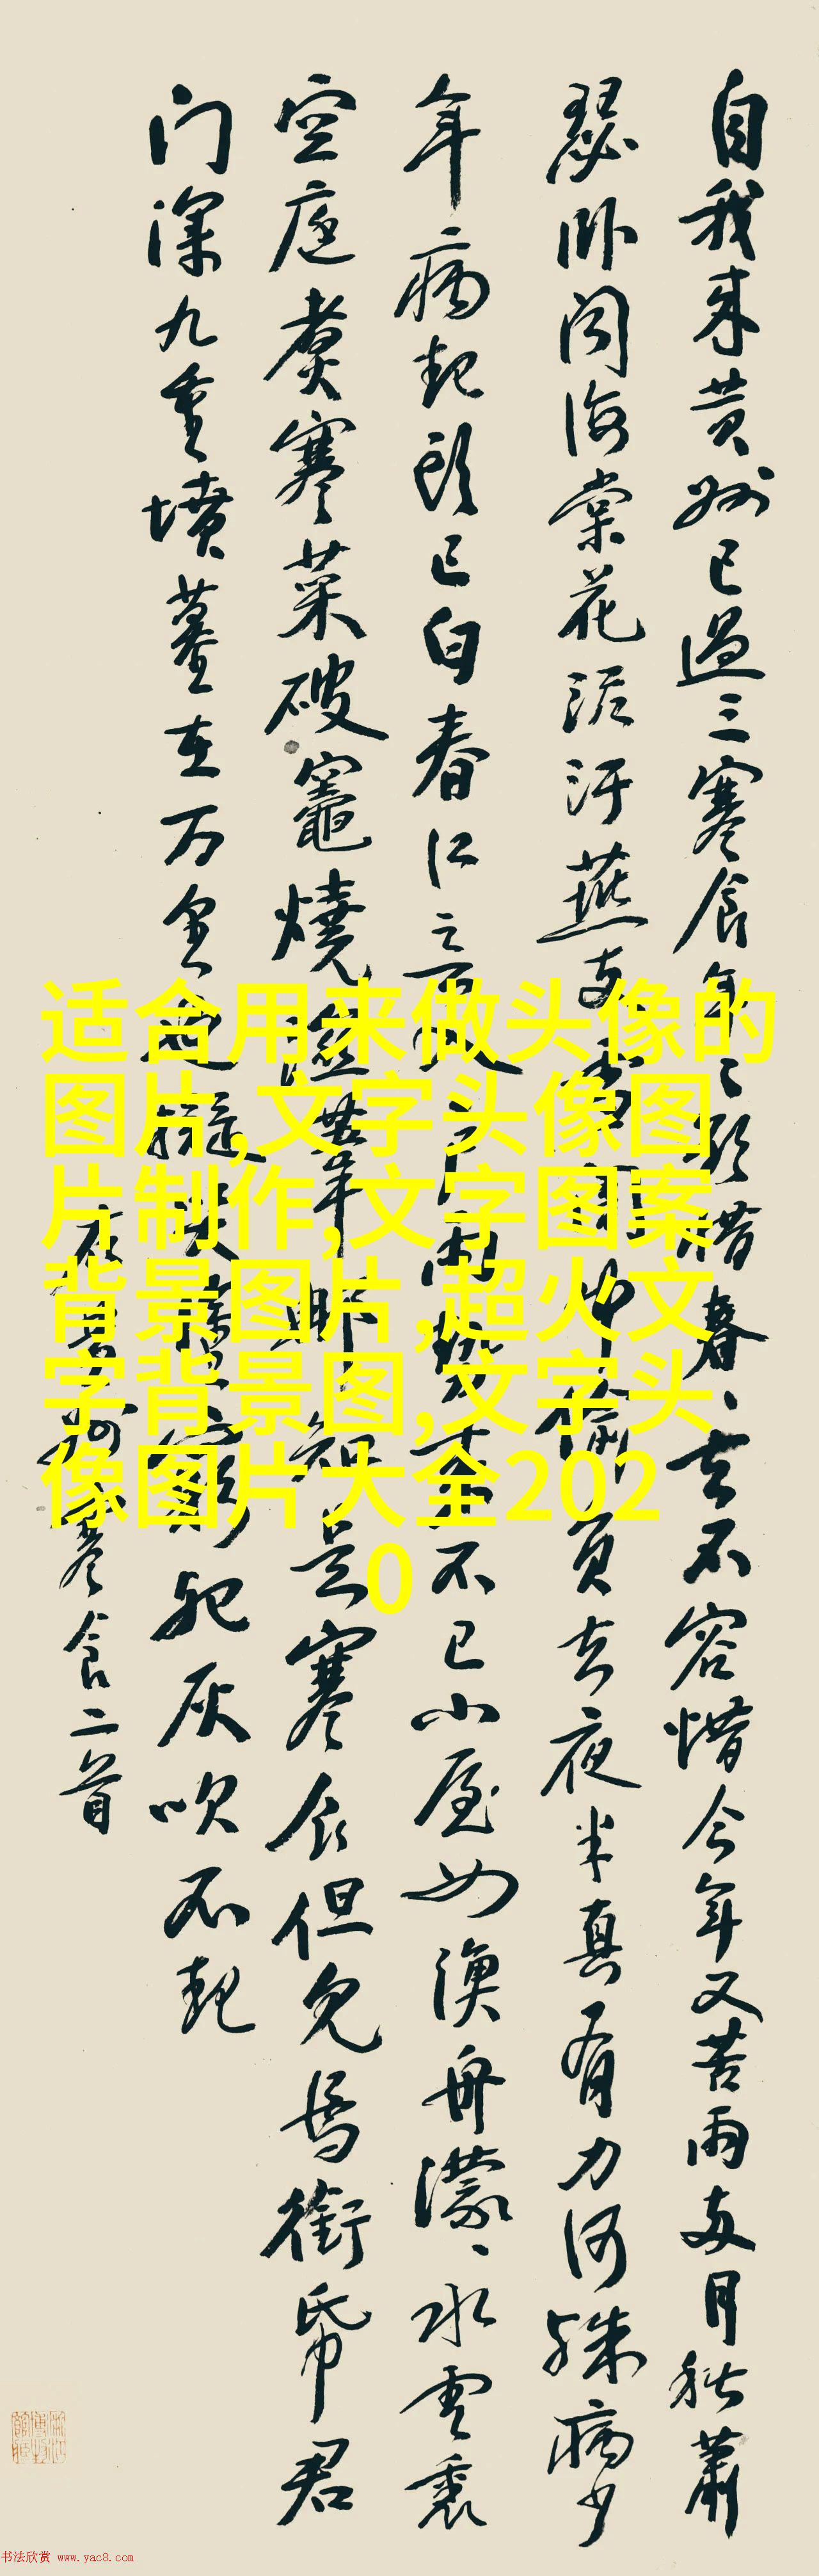 自我来黄州已過三寒食年々欲惜春、去不容惜今年又苦雨兩月秋蕭
瑟卧闻海棠花泥汙燕支雪闇中偷負去夜半真有力何殊病少
年病起頭已白春江欲入户雨勢来不已小屋如漁舟濛、水雲裏
空庖煮寒菜破竈燒濕葦那知是寒食但見烏銜帋君
门深九重墳墓在万里也擬哭塗窮死灰吹不起
右黄州寒食二首
适合用来做头像的
图片,文字头像图
片制作,文字图案
背景图片,超火文
字背景图,文字头
像图片大全202
0
书法欣赏 www.yac8.com